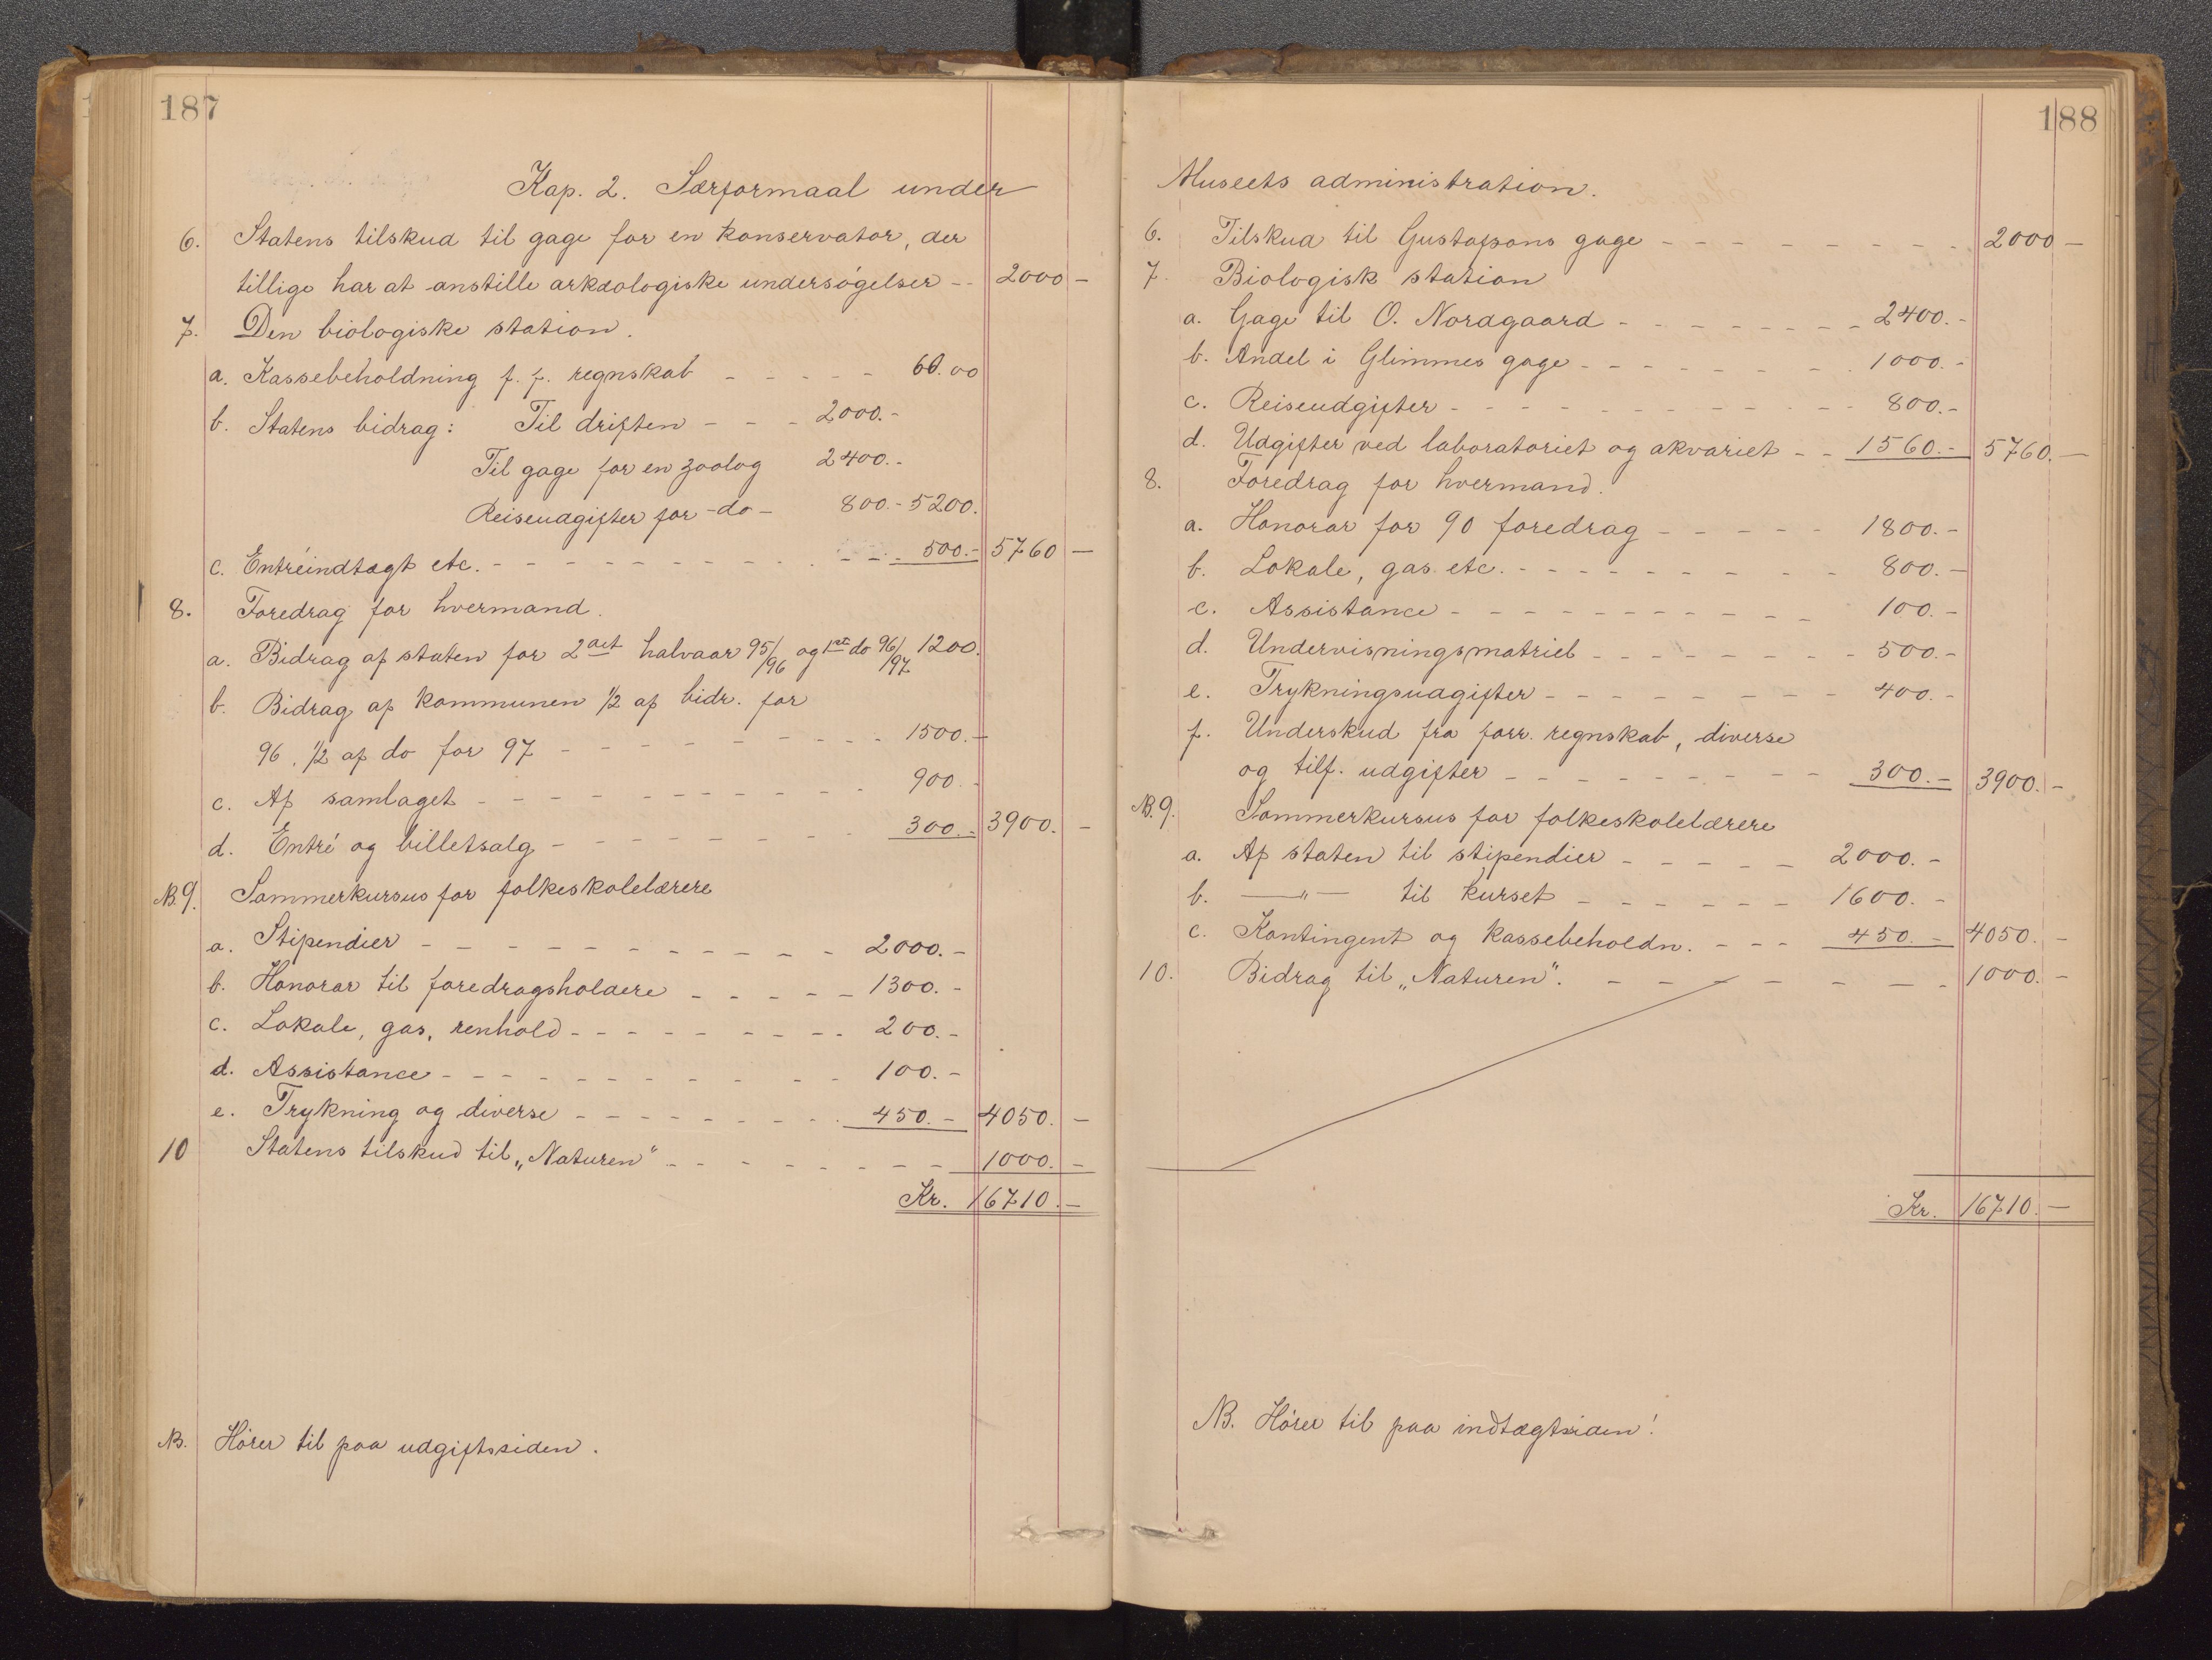 187
Kap. 2. Særformaal under
6. Statens tilskud til gage for en konservator, der
tillige har at anstille arkæologiske undersøgelser -- 2000 -
7. Den biologiske station.
a. Kassebeholdning f. f. regnskab - - - - - 60.00
b. Statens bidrag: Til driften - - - 2000.-
Til gage for en zoolog 2400.-
Reiseudgifter for -do- 800.- 5200.
c. Entréindtægt etc. - - - - - - - - - - - - 500.- 5760 -
8. Foredrag for hvermand.
a. Bidrag af staten for 2det halvaar 95/96 og 1ste do 96/97 1200.
b. Bidrag af kommunen 1/2 af bidr. for
96, 1/2 af do for 97 - - - - - - - - - 1500.-
c. Af samlaget - - - - - - - - - - - 900.-
d. Entré og billetsalg - - - - - - - - 300.- 3900. -
NB. 9. Sommerkursus for folkeskolelærere
a. Stipendier - - - - - - - - - - - 2000.-
b. Honorar til foredragsholdere - - - - - 1300.-
c. Lokale, gas, renhold - - - - - - - - - 200.-
d. Assistance - - - - - - - - - - - 100.-
e. Trykning og diverse - - - - - - - - 450.- 4050. -
10 Statens tilskud til „Naturen“ - - - - - - - - 1000. -
Kr. 16710.-
NB. Hører til paa udgiftssiden.
188
Museets administration.
6. Tilskud til Gustafsons gage - - - - - - - - - 2000 -
7. Biologisk station
a. Gage til O. Nordgaard - - - - - - - - 2400.-
b. Andel i Glimmes gage - - - - - - - - 1000.-
c. Reiseudgifter - - - - - - - - - - - - 800.-
d. Udgifter ved laboratoriet og akvariet - - 1560.- 5760. -
8. Foredrag for hvermand.
a. Honorar for 90 foredrag - - - - - 1800.-
b. Lokale, gas etc. - - - - - - - - - 800.-
c. Assistance - - - - - - - - - - 100.-
d. Undervisningsmatriel - - - - - - - - 500.-
e. Trykningsudgifter - - - - - - - - 400.-
f. Underskud fra forr. regnskab, diverse
og tilf. udgifter - - - - - - - - - 300.- 3900. -
NB. 9. Sommerkursus for folkeskolelærere
a. Af staten til stipendier - - - - - 2000.-
b. —„— til kurset - - - - - - 1600.-
c. Kontingent og kassebeholdn. - - - 450.- 4050. -
10. Bidrag til „Naturen“. - - - - - - - - 1000. -
Kr. 16710.-
NB. Hører til paa indtægtsiden!